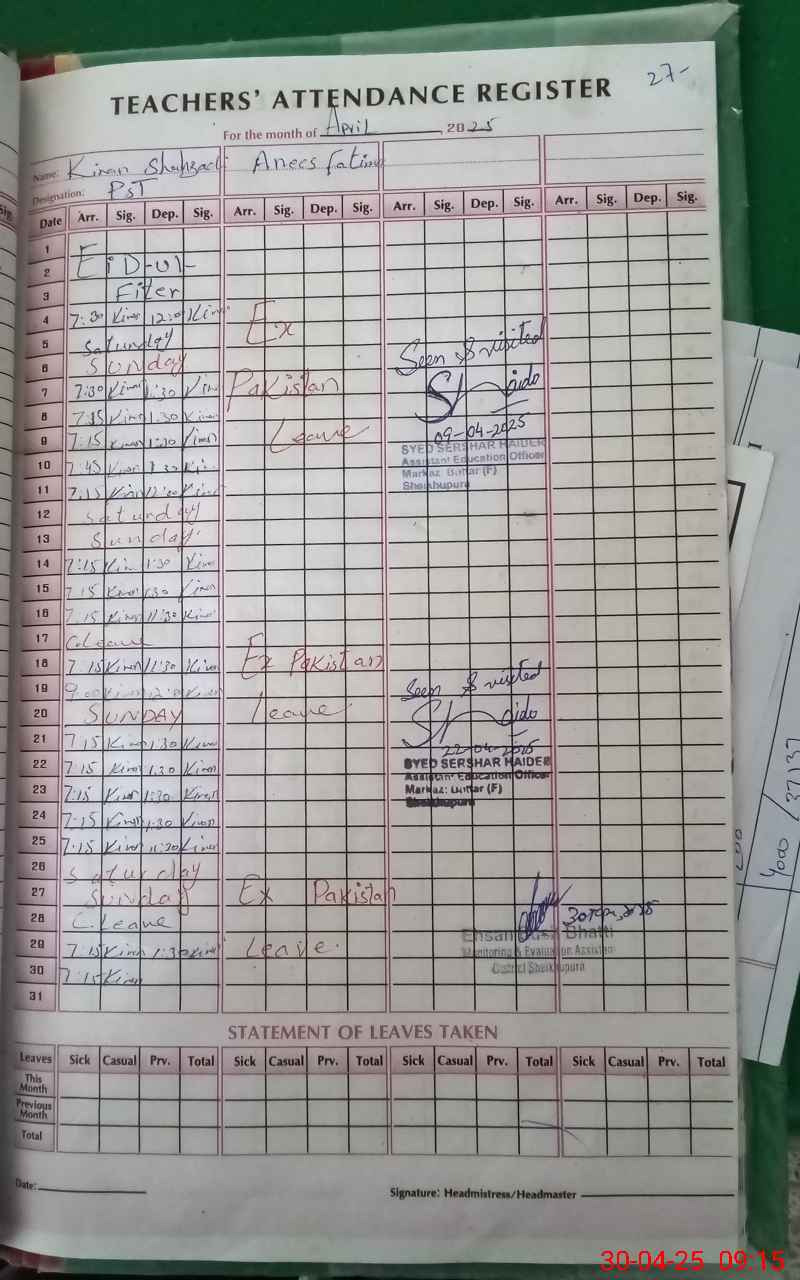 27-
TEACHERS' ATTENDANCE REGISTER
For the month of April, 2025
Name: Kiran Shahzadi Anees Fatima
Designation: PST
Date Arr. Sig. Dep. Sig. Arr. Sig. Dep. Sig. Arr. Sig. Dep. Sig. Arr. Sig. Dep. Sig.
1
2 EiD-ul-
3 Fiter
4 7:30 Kiran 12:0 Kiran Ex
5 Saturday
6 SUNday Seen & visited
7 7:30 Kiran 1:30 Kiran Pakistan
8 7:15 Kiran 1:30 Kiran
9 7:15 Kiran 1:30 Kiran Leave 09-04-2025
10 7:45 Kiran 1:30 Kiran SYED SERSHAR HAIDER
Assistant Education Officer
Markaz: (F)
11 7:15 Kiran Kiran Sheikhupura
12 Saturday
13 Sunday
14 7:15 Kiran 1:30 Kiran
15 7:15 Kiran 1:30 Kiran
16 7:15 Kiran 11:30 Kiran
17 C.Leave
18 7:15 Kiran 11:30 Kiran Ex Pakistan
19 9:00 Kiran 12:0 Kiran Seen & visited
20 SUNDAY Leave
21 7:15 Kiran 1:30 Kiran 22-04-2025
22 7:15 Kiran 1:30 Kiran SYED SERSHAR HAIDER
Assistant Education Officer
23 7:15 Kiran 1:30 Kiran Markaz: (F)
Sheikhupura
24 7:15 Kiran 1:30 Kiran
25 7:15 Kiran 11:30 Kiran
26 Saturday
27 Sunday Ex Pakistan
28 C.Leave
29 7:15 Kiran 1:30 Kiran Leave. Ehsan Bhatti
Monitoring & Evaluation Assistant
30 7:15 Kiran District Sheikhupura
31
STATEMENT OF LEAVES TAKEN
Leaves Sick Casual Prv. Total Sick Casual Prv. Total Sick Casual Prv. Total Sick Casual Prv. Total
This Month
Previous Month
Total
Date:
Signature: Headmistress/Headmaster
4000 / 37137
30-04-25 09:15